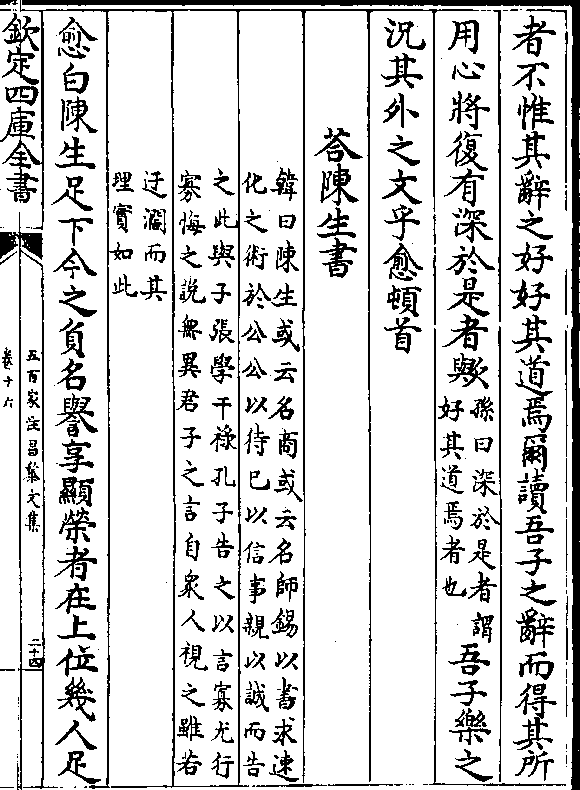 者不惟其辭之好好其道焉爾讀吾子之辭而得其所
用心將復有深於是者歟孫曰深於是者謂好其道焉者也吾子樂之
況其外之文乎愈頓首
荅陳生書
韓曰陳生或云名商或云名師錫以書求速
化之術於公公以待已以信事親以誠而告
之此與子張學干祿孔子告之以言寡尤行
寡悔之說無異君子之言自衆人視之雖若
迂濶而其
理實如此
愈白陳生足下今之負名譽享顯榮者在上位幾人足
欽定四庫全書
五百家注昌黎文集
卷十六
二十四